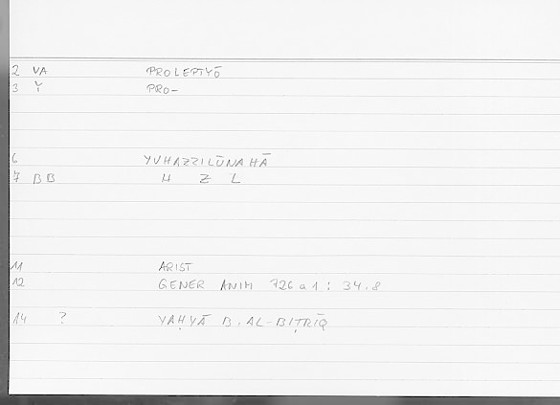 2 VA PROLEPTYŌ
3 Ÿ PRO-
6 YUHAZZILŪNAHĀ
7 BB H Z L
11 ARIST
12 GENER ANIM 726a1: 34.8
14 ? YAḤYĀ B. AL-BIṬRĪQ